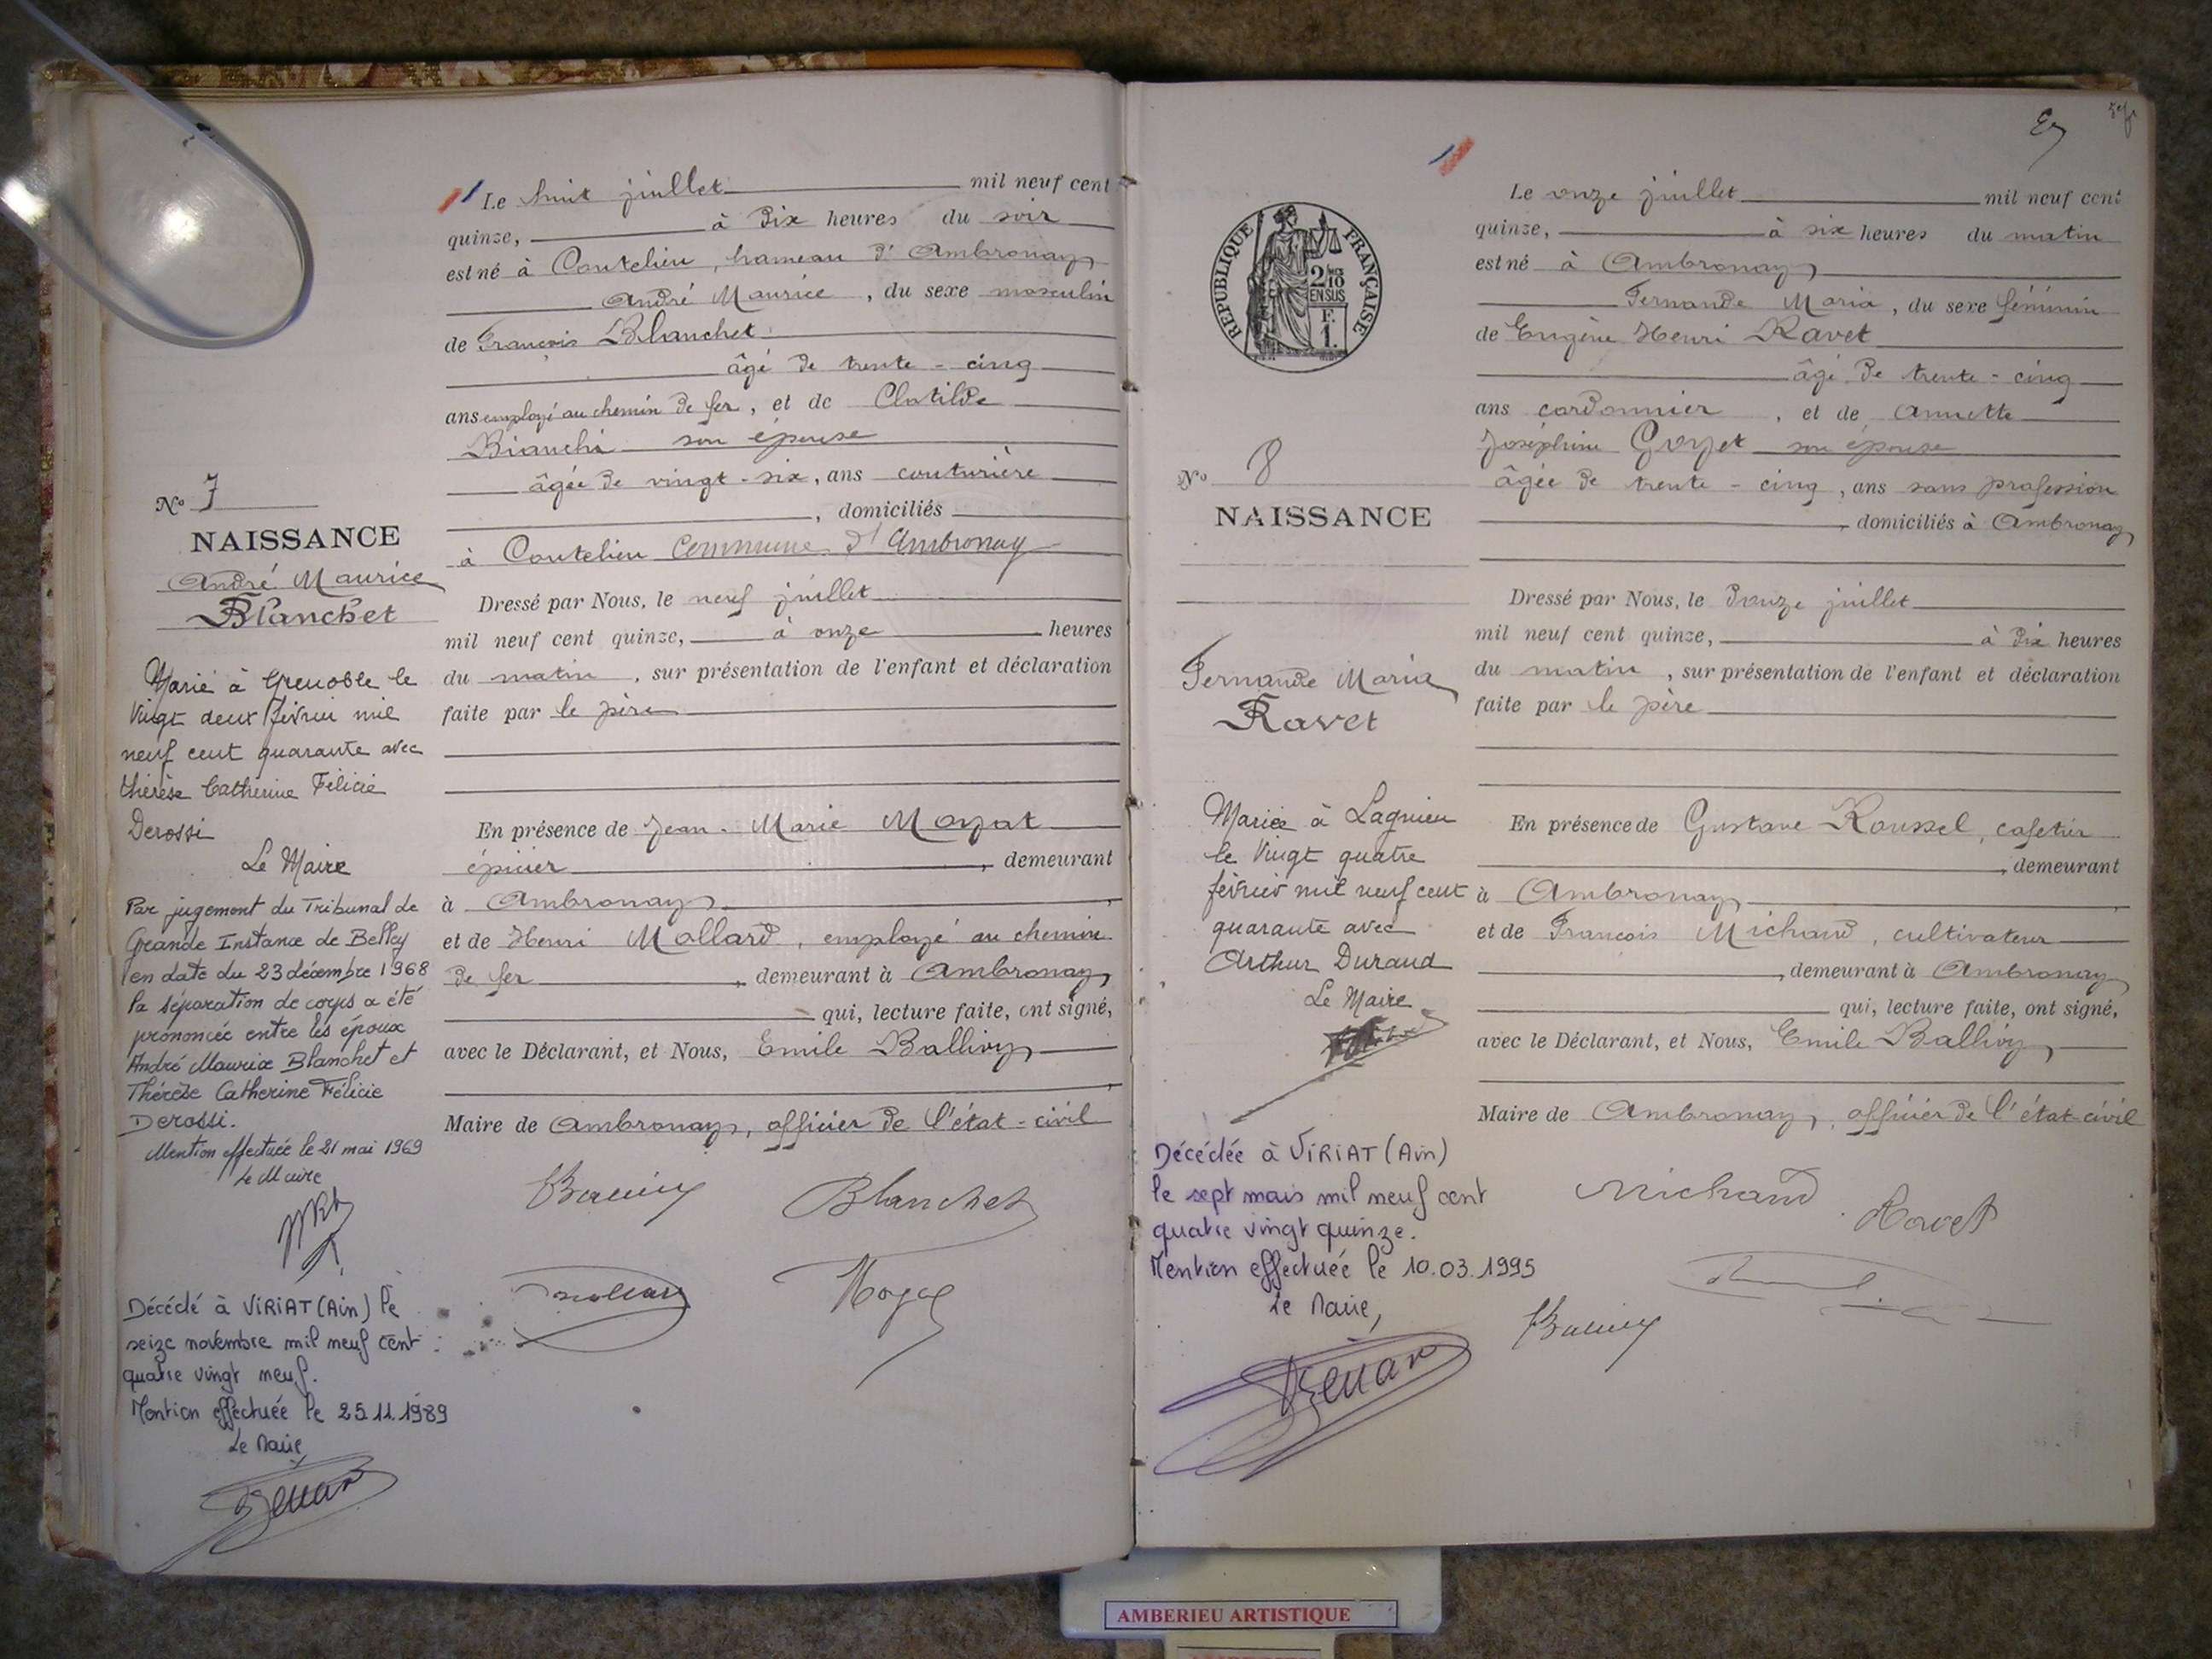 Le huit juillet mil neuf cent
quinze, à dix heures du soir
est né à Coutelieu, hameau d'Ambronay
André Maurice, du sexe masculin
de François Blanchet
âgé de trente-cinq
ans employé au chemin de fer, et de Clotilde
Bianchi son épouse
âgée de vingt-six, ans couturière
, domiciliés
à Coutelieu Commune d'Ambronay
Dressé par Nous, le neuf juillet
mil neuf cent quinze, à onze heures
du matin, sur présentation de l'enfant et déclaration
faite par le père
En présence de Jean-Marie Moyat
épicier, demeurant
à Ambronay,
et de Henri Mollard, employé au chemin
de fer, demeurant à Ambronay,
qui, lecture faite, ont signé,
avec le Déclarant, et Nous, Emile Ballivy,
Maire de Ambronay, officier de l'état-civil
Blanchet
Nº 7
NAISSANCE
André Maurice
Blanchet
Marié à Grenoble le
vingt deux février mil
neuf cent quarante avec
thérèse Catherine Félicie
Derossi
Le Maire
Par jugement du Tribunal de
Grande Instance de Belley
en date du 23 décembre 1968
la séparation de corps a été
prononcée entre les époux
André Maurice Blanchet et
Thérèse Catherine Félicie
Derossi.
Mention effectuée le 21 mai 1969
Le Maire
Décédé à VIRIAT (Ain) le
seize novembre mil neuf cent
quatre vingt neuf.
Mention effectuée le 25.11.1989
Le Maire
RÉPUBLIQUE FRANÇAISE
2/10
EN SUS
F.
1.
Le onze juillet mil neuf cent
quinze, à six heures du matin
est né à Ambronay
Fernande Maria, du sexe féminin
de Eugène Henri Ravet
âgé de trente-cinq
ans cordonnier, et de Annette
Joséphine Goyet son épouse
âgée de trente-cinq, ans sans profession
, domiciliés à Ambronay
Dressé par Nous, le douze juillet
mil neuf cent quinze, à dix heures
du matin, sur présentation de l'enfant et déclaration
faite par le père
En présence de Gustave Roussel, cafetier
, demeurant
à Ambronay,
et de François Michaud, cultivateur
, demeurant à Ambronay
qui, lecture faite, ont signé,
avec le Déclarant, et Nous, Emile Ballivy,
Maire de Ambronay, officier de l'état-civil
Michaud
Ravet
Nº 8
NAISSANCE
Fernande Maria
Ravet
Mariée à Lagnieu
le vingt quatre
février mil neuf cent
quarante avec
Arthur Durand
Le Maire
Décédée à VIRIAT (Ain)
le sept mars mil neuf cent
quatre vingt quinze.
Mention effectuée le 10.03.1995
Le Maire,
AMBERIEU ARTISTIQUE